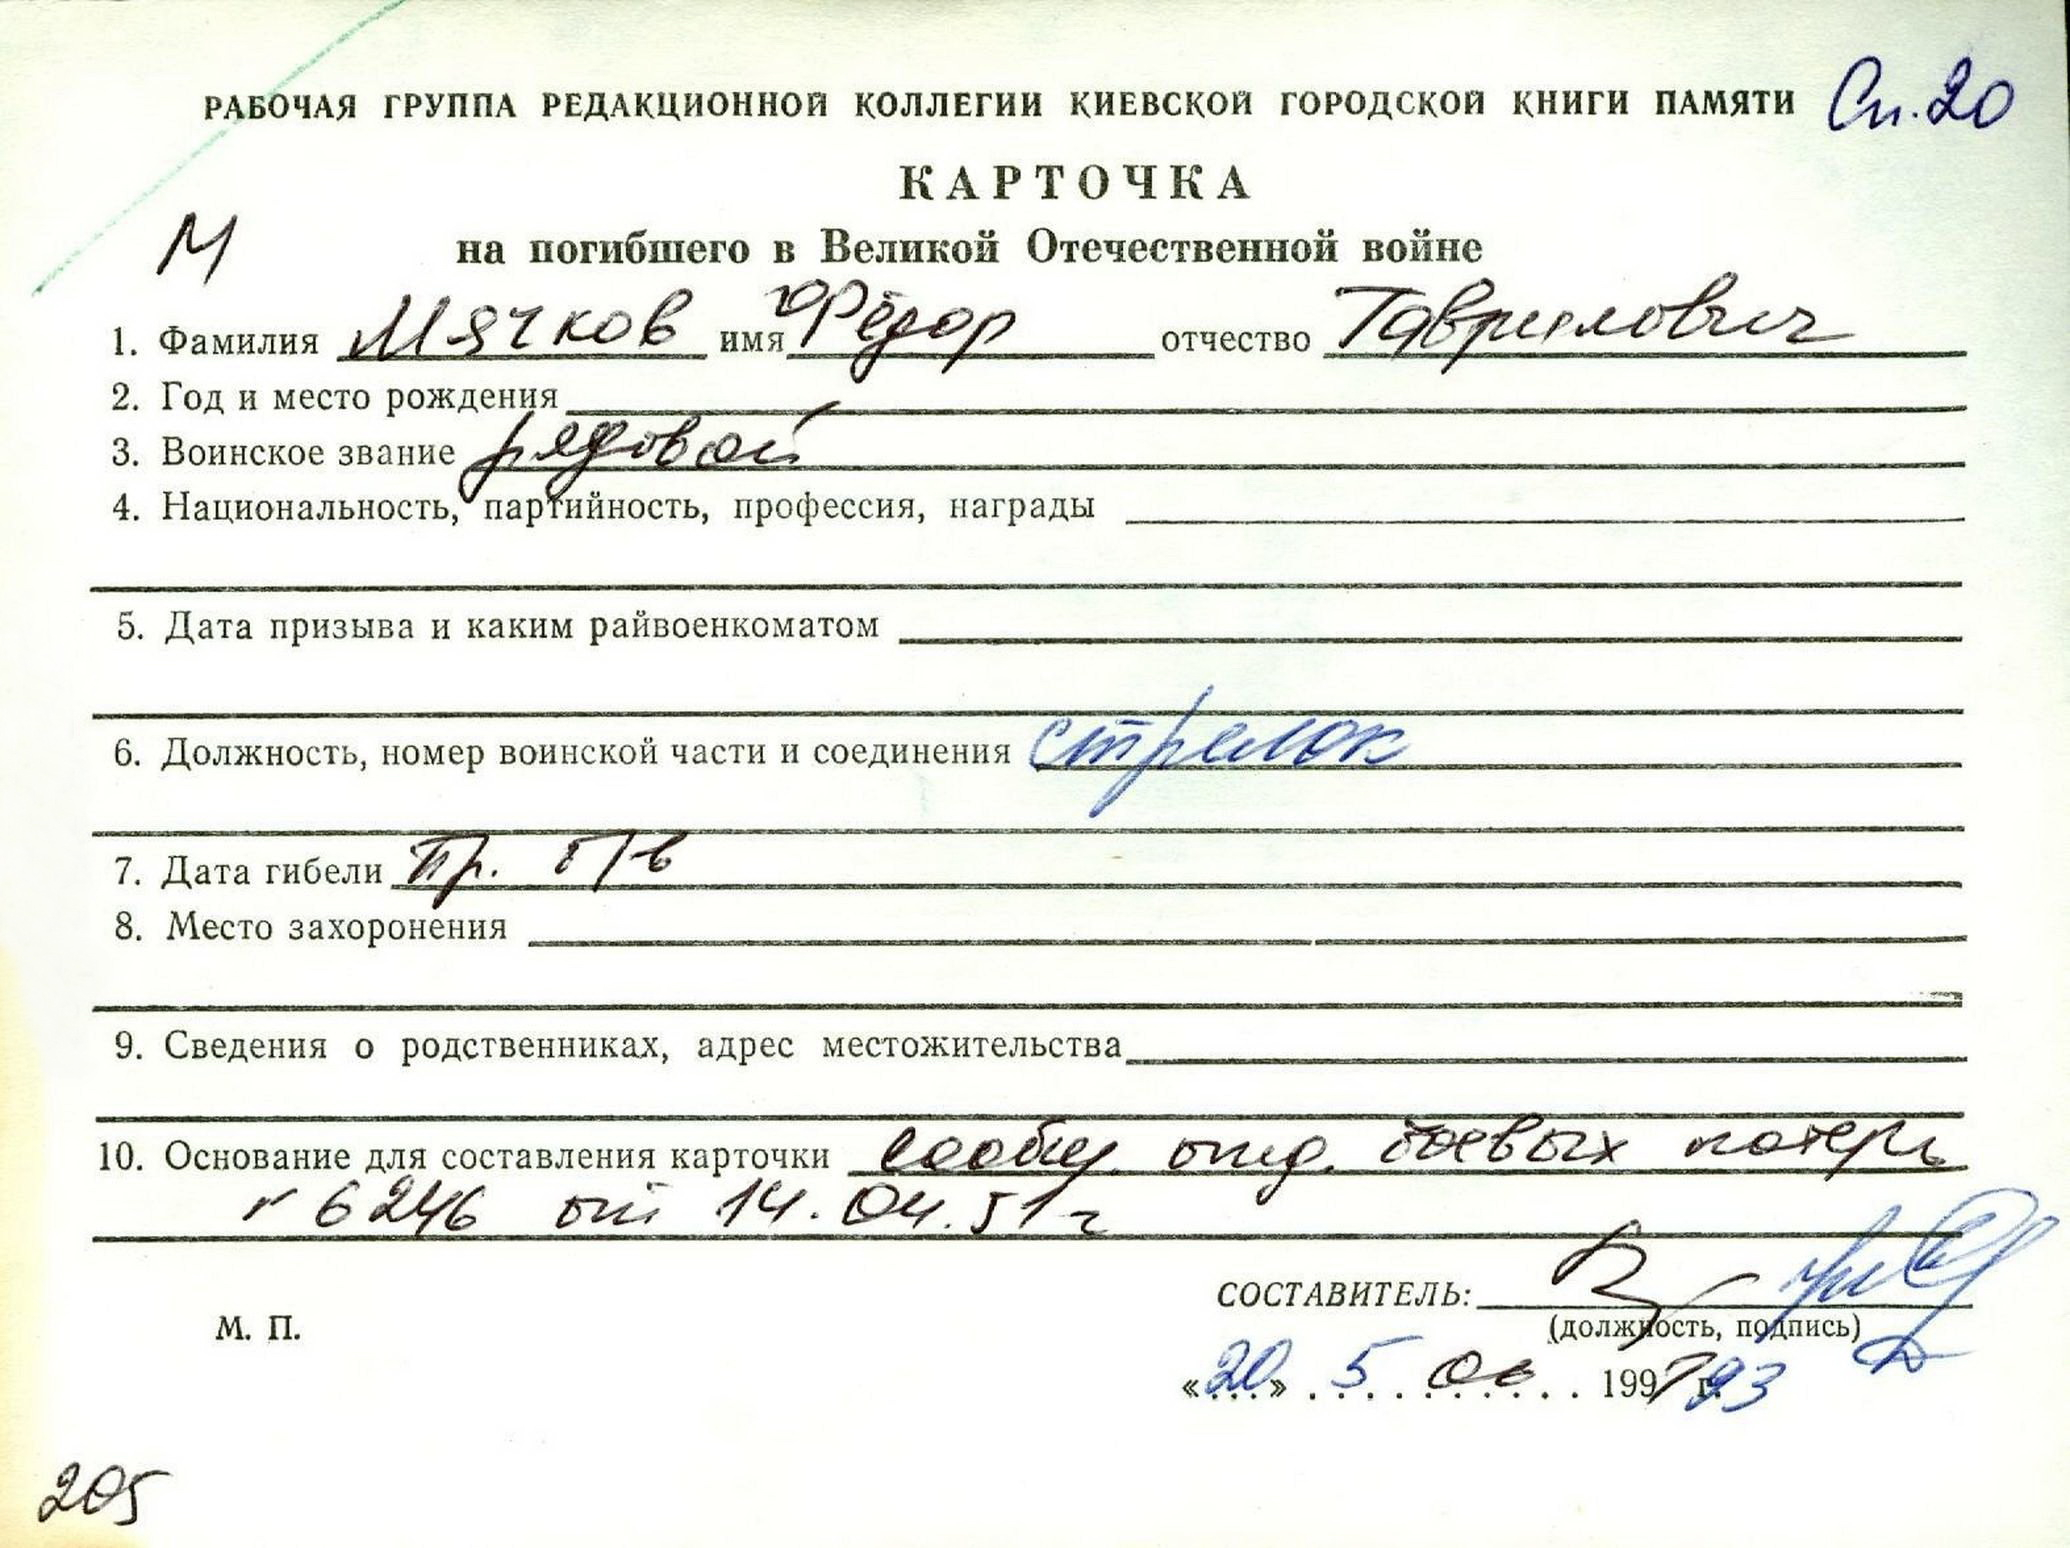 РАБОЧАЯ ГРУППА РЕДАКЦИОННОЙ КОЛЛЕГИИ КИЕВСКОЙ ГОРОДСКОЙ КНИГИ ПАМЯТИ Сп.20
КАРТОЧКА
М на погибшего в Великой Отечественной войне
1. Фамилия Мячков имя Фёдор отчество Гаврилович
2. Год и место рождения
3. Воинское звание рядовой
4. Национальность, партийность, профессия, награды
5. Дата призыва и каким райвоенкоматом
6. Должность, номер воинской части и соединения стрелок
7. Дата гибели Пр. б/в
8. Место захоронения
9. Сведения о родственниках, адрес местожительства
10. Основание для составления карточки сообщ. отд. боевых потерь
6246 от 14.04.51 г
СОСТАВИТЕЛЬ:
М. П. (должность, подпись)
«20» 5 199 г. 93
205